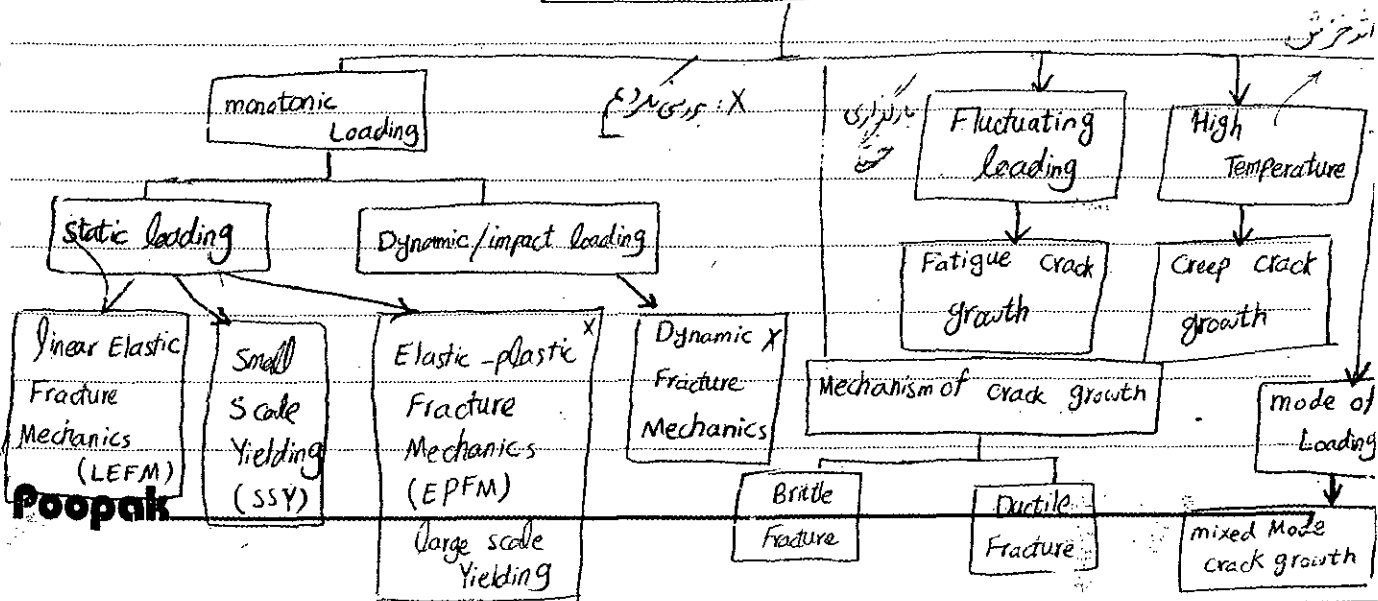 اثر خزش
monotonic
Loading
X : بررسی نمی‌کردیم
بارگذاری
Fluctuating
loading
High
Temperature
static loading
Dynamic/impact loading
Fatigue crack
growth
Creep crack
growth
linear Elastic
Fracture
Mechanics
(LEFM)
Small
Scale
Yielding
(SSY)
X
Elastic-plastic
Fracture
Mechanics
(EPFM)
large scale
Yielding
Dynamic X
Fracture
Mechanics
Mechanism of crack growth
Brittle
Fracture
Ductile
Fracture
mode of
Loading
mixed Mode
crack growth
Poopak